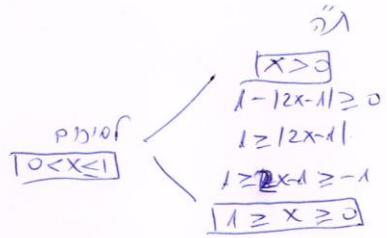 ת"ה
x>0
1-|2x-1|≥0
1≥|2x-1|
1≥2x-1≥-1
1≥x≥0
לסיכום
0<x≤1